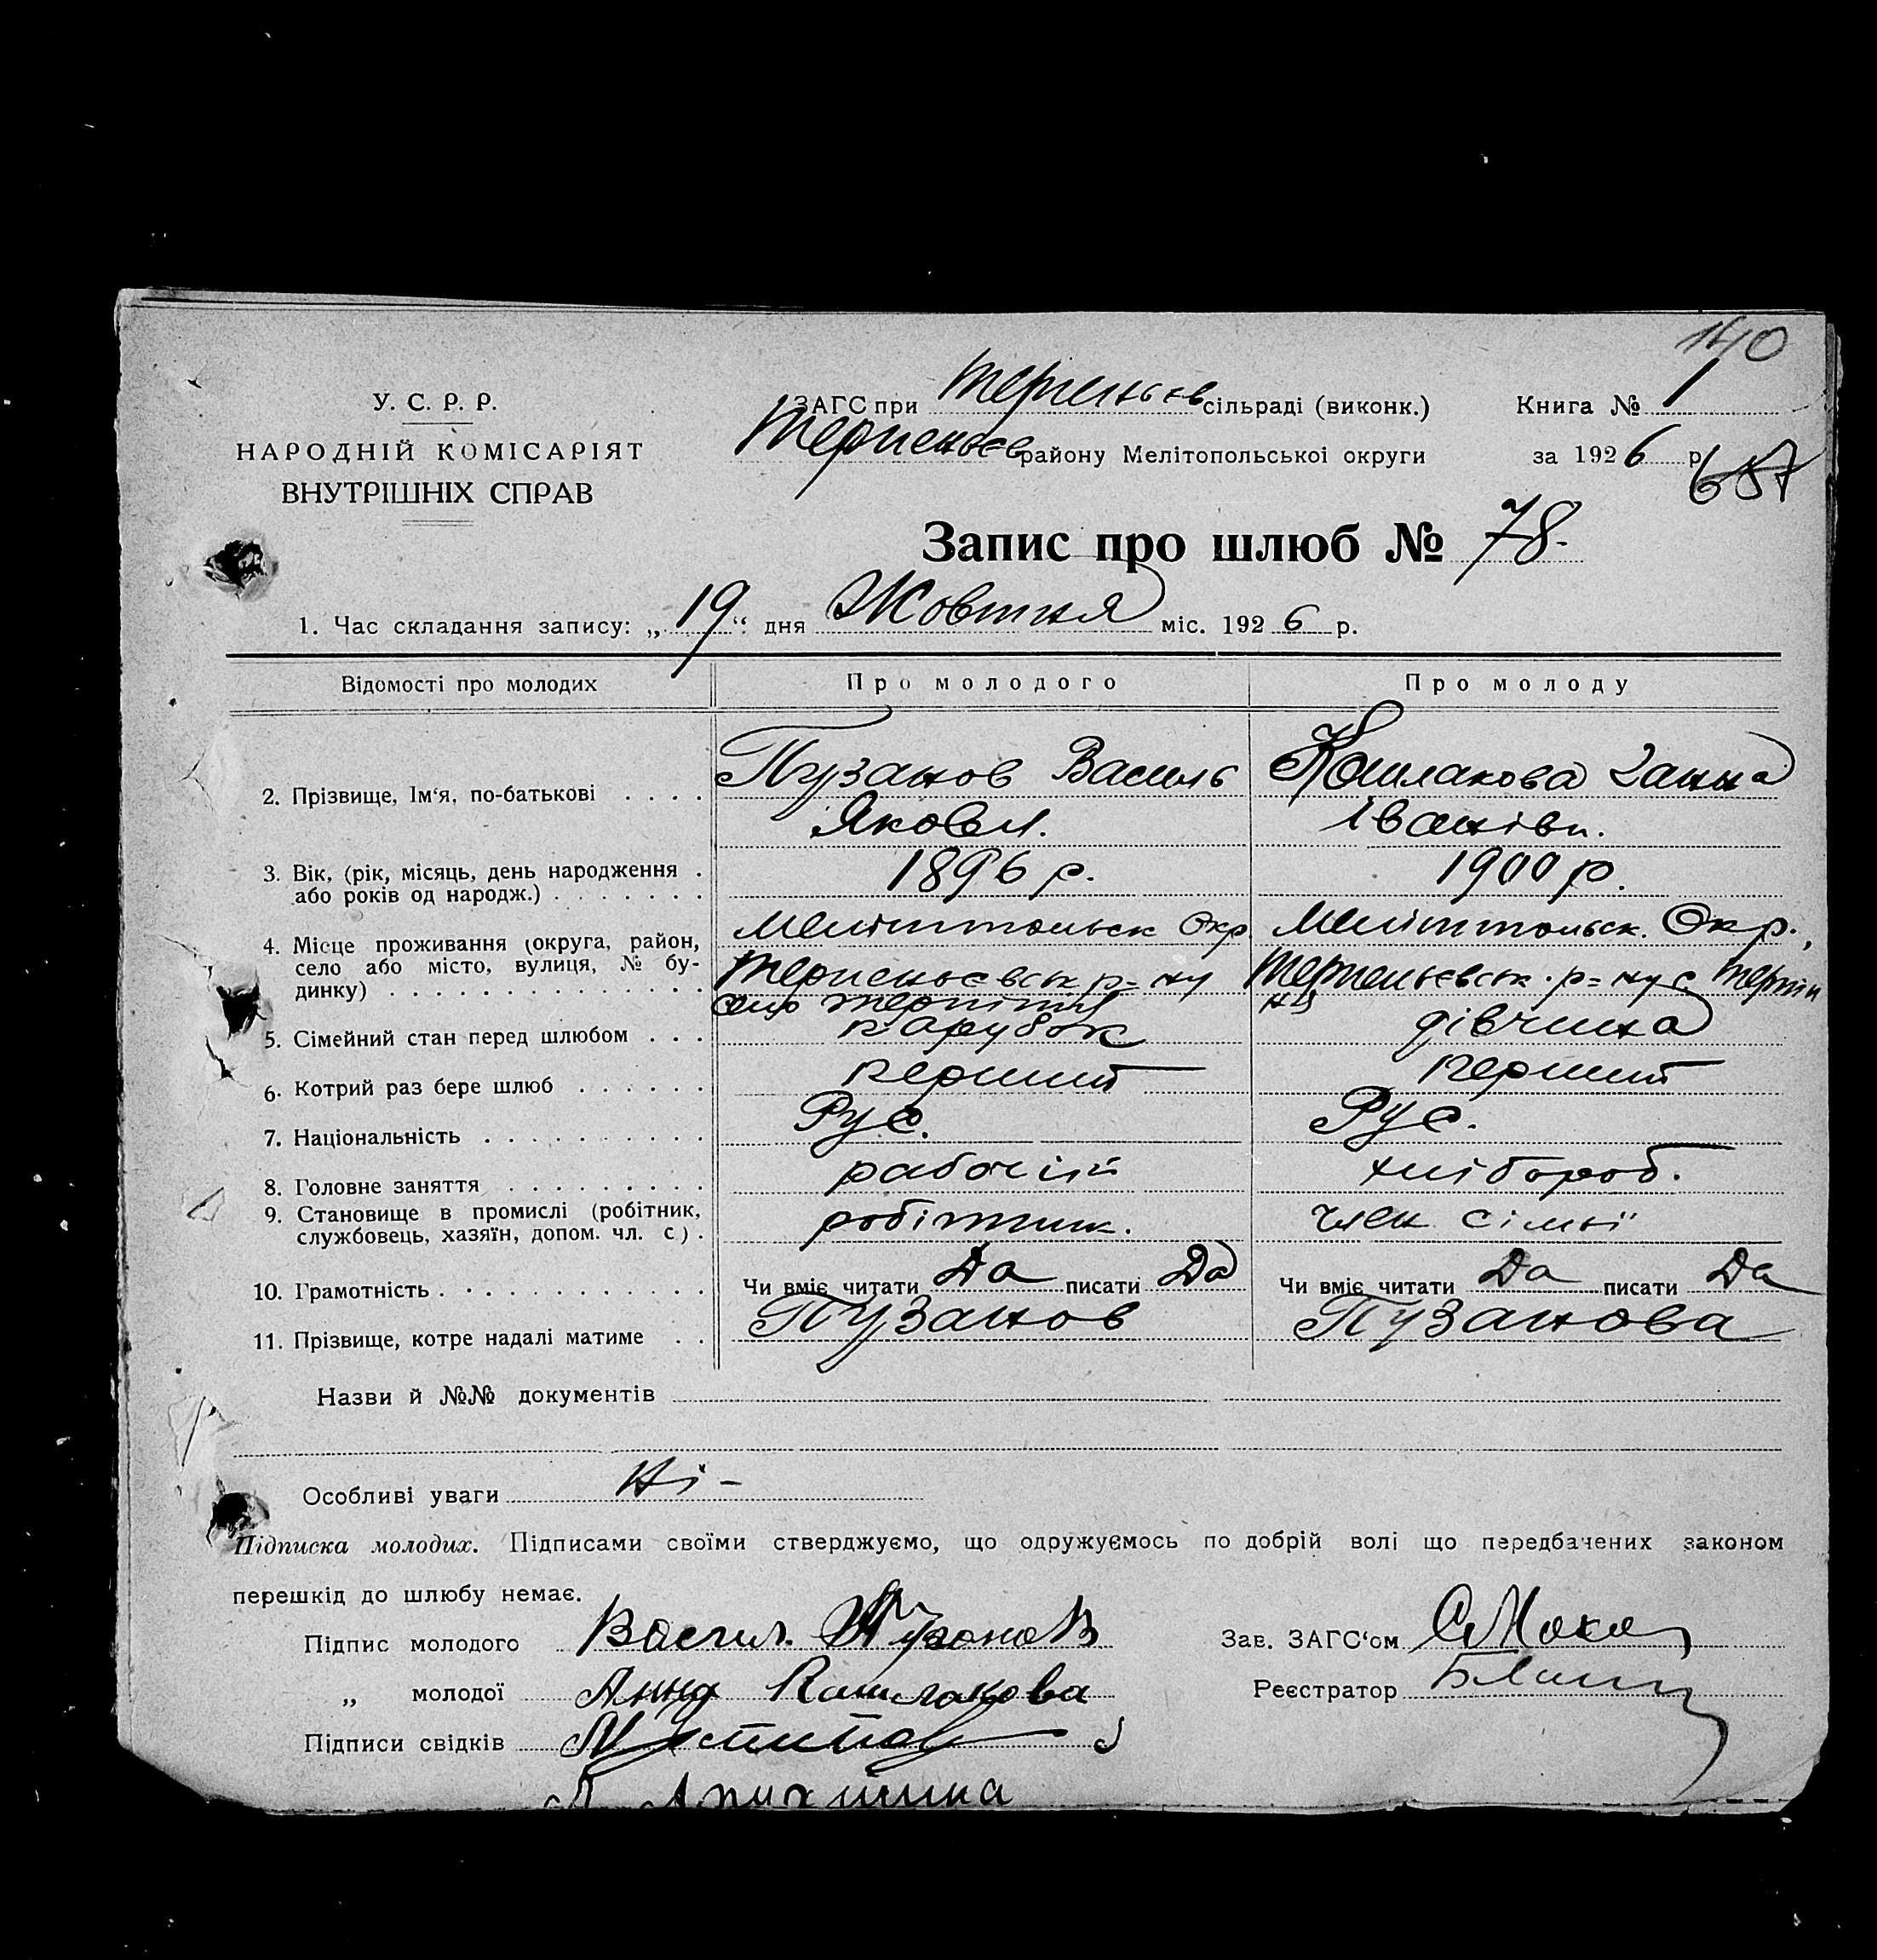 140
У. С. Р. Р.
НАРОДНІЙ КОМІСАРІЯТ
ВНУТРІШНІХ СПРАВ
ЗАГС при Терпеньєв сільраді (виконк.)
Терпеньєв району Мелітопольської округи
Книга № 1
за 1926 р.
657
Запис про шлюб № 78.
1. Час складання запису: „19“ дня Жовтня міс. 1926 р.
Відомості про молодих Про молодого Про молоду
2. Прізвище, Ім'я, по-батькові . . . . Пузанов Василь Кошлакова Ганна
Яковл. Іванівн.
3. Вік, (рік, місяць, день народження . 1896 р. 1900 р.
або років од народж.) . . . . . . .
4. Місце проживання (округа, район, Мелітопольск Окр. Мелітопольск. Окр.,
село або місто, вулиця, № бу- Терпеньєвськ р=ну Терпеньєвськ. р=ну с Терпін
динку) . . . . . . . . . . . . . село Терпіння ня
5. Сімейний стан перед шлюбом . . . парубок дівчина
6. Котрий раз бере шлюб . . . . . . перший перший
7. Національність . . . . . . . . . . Рус. Рус.
8. Головне заняття . . . . . . . . . рабочій хлібороб.
9. Становище в промислі (робітник, робітник. член сімьї
службовець, хазяїн, допом. чл. с) .
10. Грамотність . . . . . . . . . . . . Чи вміє читати Да писати Да Чи вміє читати Да писати Да
11. Прізвище, котре надалі матиме . . Пузанов Пузанова
Назви й №№ документів
Особливі уваги Ні -
Підписка молодих. Підписами своїми стверджуємо, що одружуємось по добрій волі що передбачених законом
перешкід до шлюбу немає.
Підпис молодого Васил. Пузанов Зав. ЗАГС'ом
„ молодої Анна Кошлакова Реєстратор
Підписи свідків